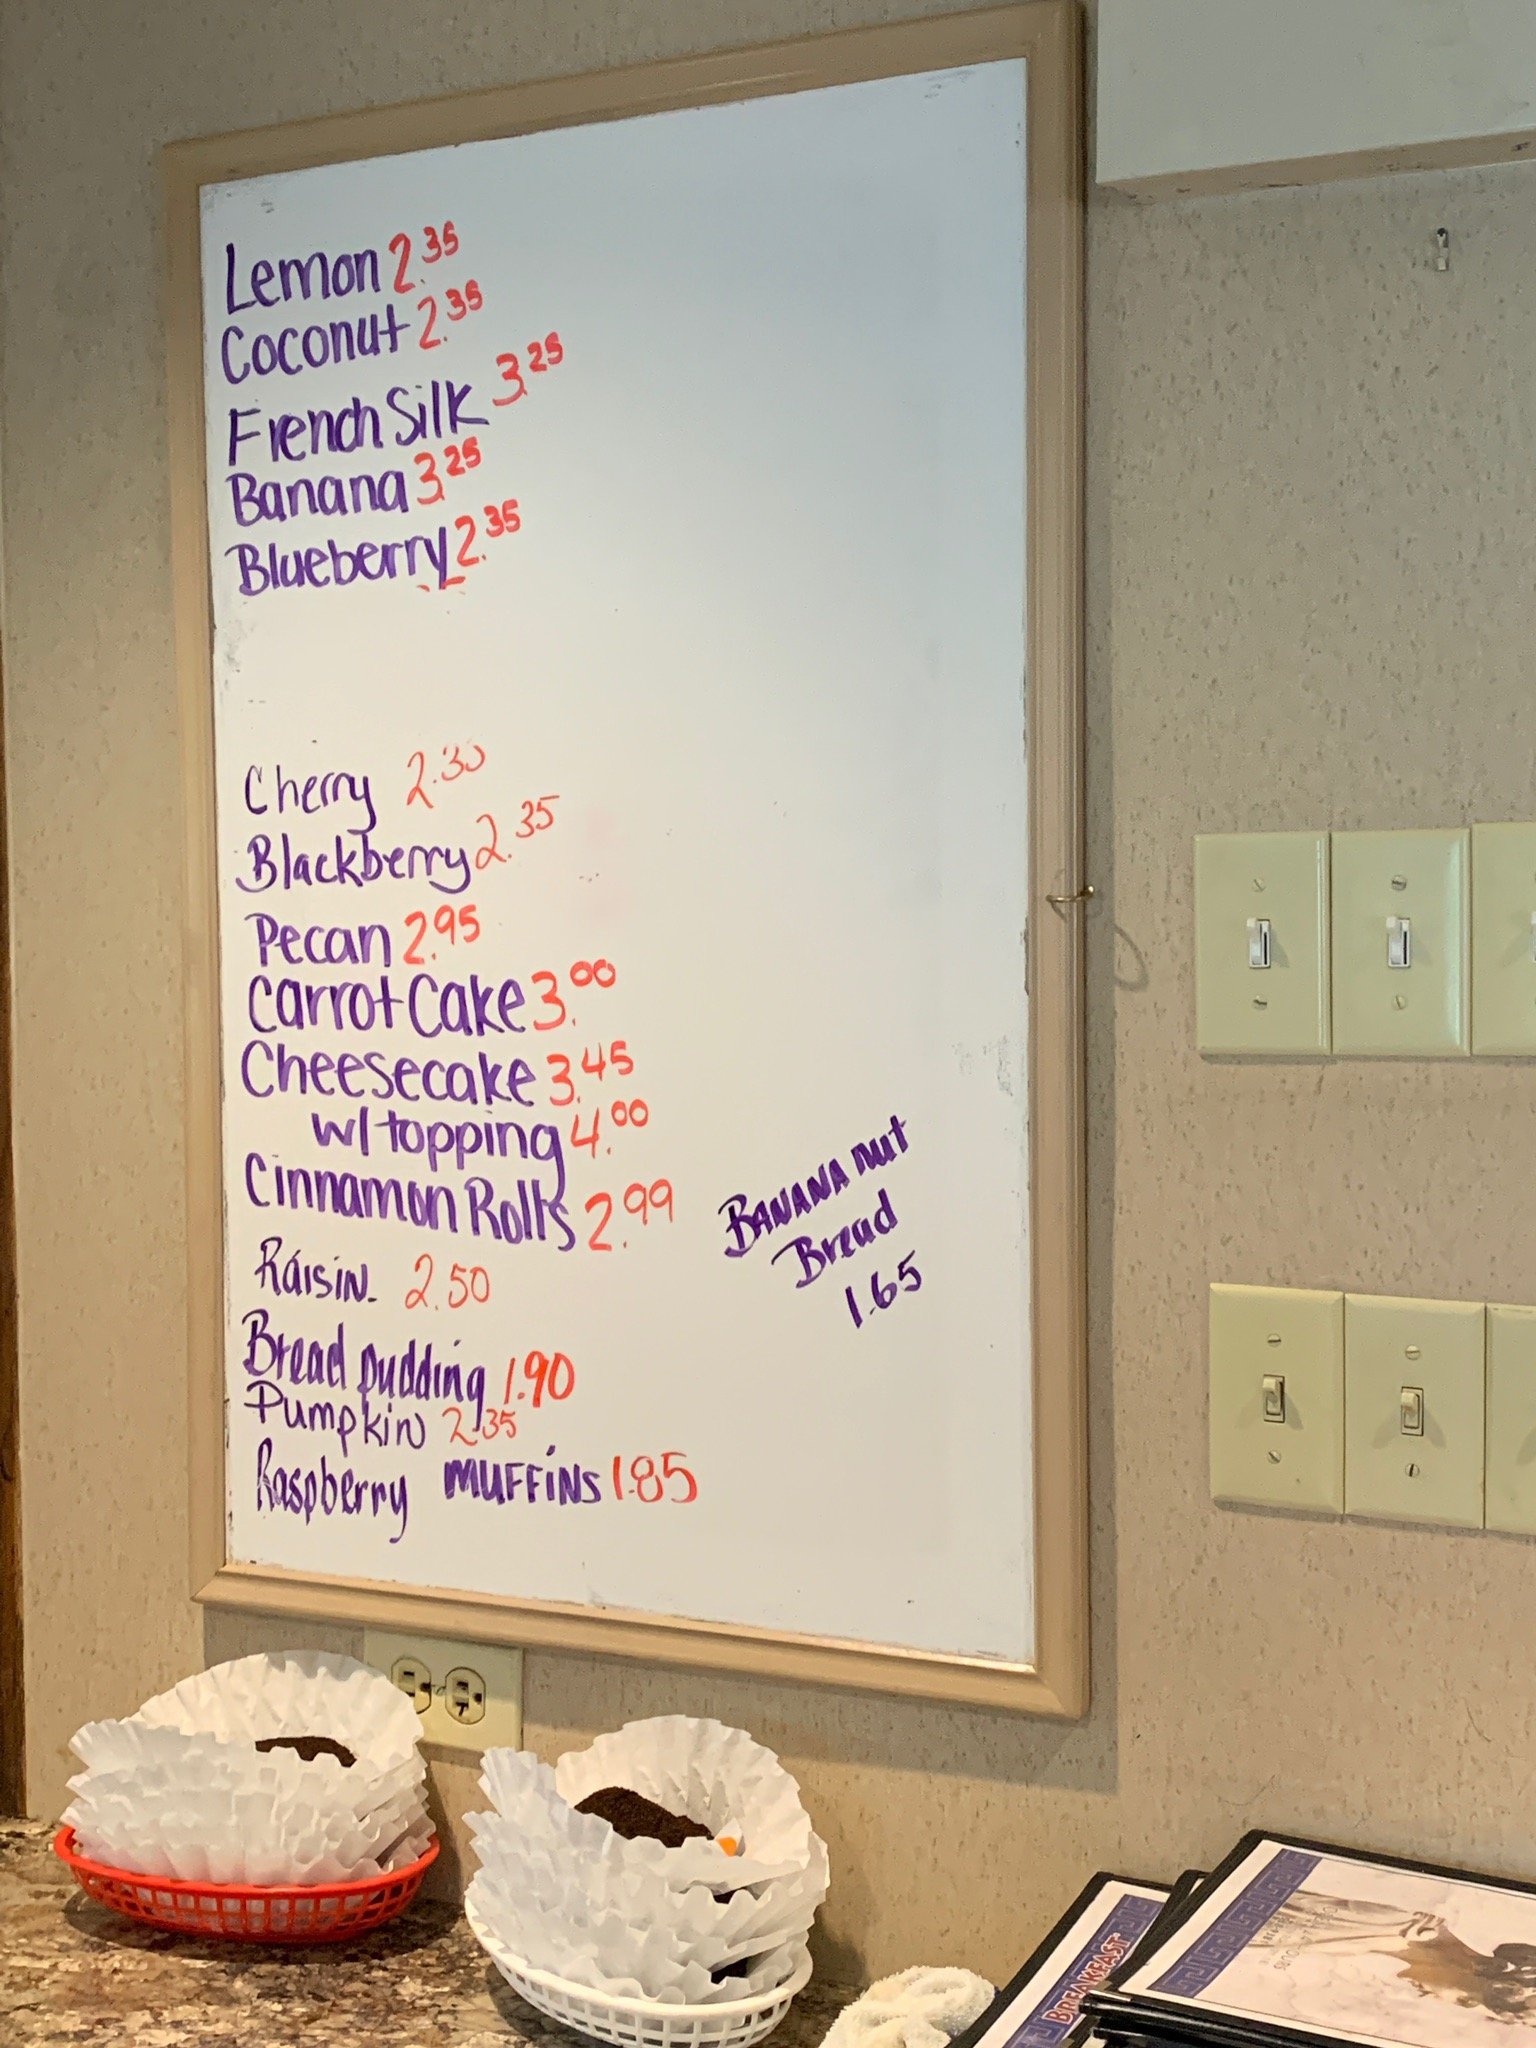 Lemon 2.35
Coconut 2.35
French Silk 3.25
Banana 3.25
Blueberry 2.35
Cherry 2.30
Blackberry 2.35
Pecan 2.95
Carrot Cake 3.00
Cheesecake 3.45
w/topping 4.00
Cinnamon Rolls 2.99
Raisin 2.50
Bread pudding 1.90
Pumpkin 2.35
Raspberry MUFFiNS 1.85
BANANA nut
Bread
1.65
BREAKFAST